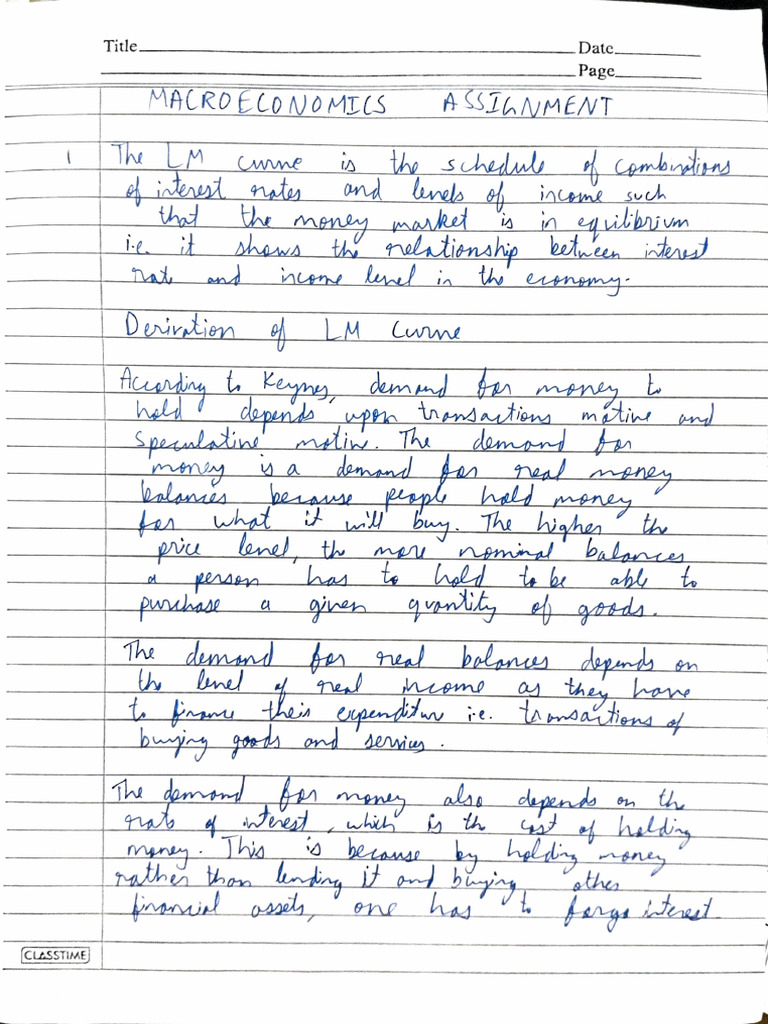 Title Date
Page
MACROECONOMICS ASSIGNMENT
1 The LM curve is the schedule of combinations
of interest rates and levels of income such
that the money market is in equilibrium
i.e. it shows the relationship between interest
rate and income level in the economy.
Derivation of LM Curve
According to Keynes, demand for money to
hold depends upon transactions motive and
speculative motive. The demand for
money is a demand for real money
balances because people hold money
for what it will buy. The higher the
price level, the more nominal balances
a person has to hold to be able to
purchase a given quantity of goods.
The demand for real balances depends on
the level of real income as they have
to finance their expenditure i.e. transactions of
buying goods and services.
The demand for money also depends on the
rate of interest, which is the cost of holding
money. This is because by holding money
rather than lending it and buying other
financial assets, one has to forgo interest
CLASSTIME